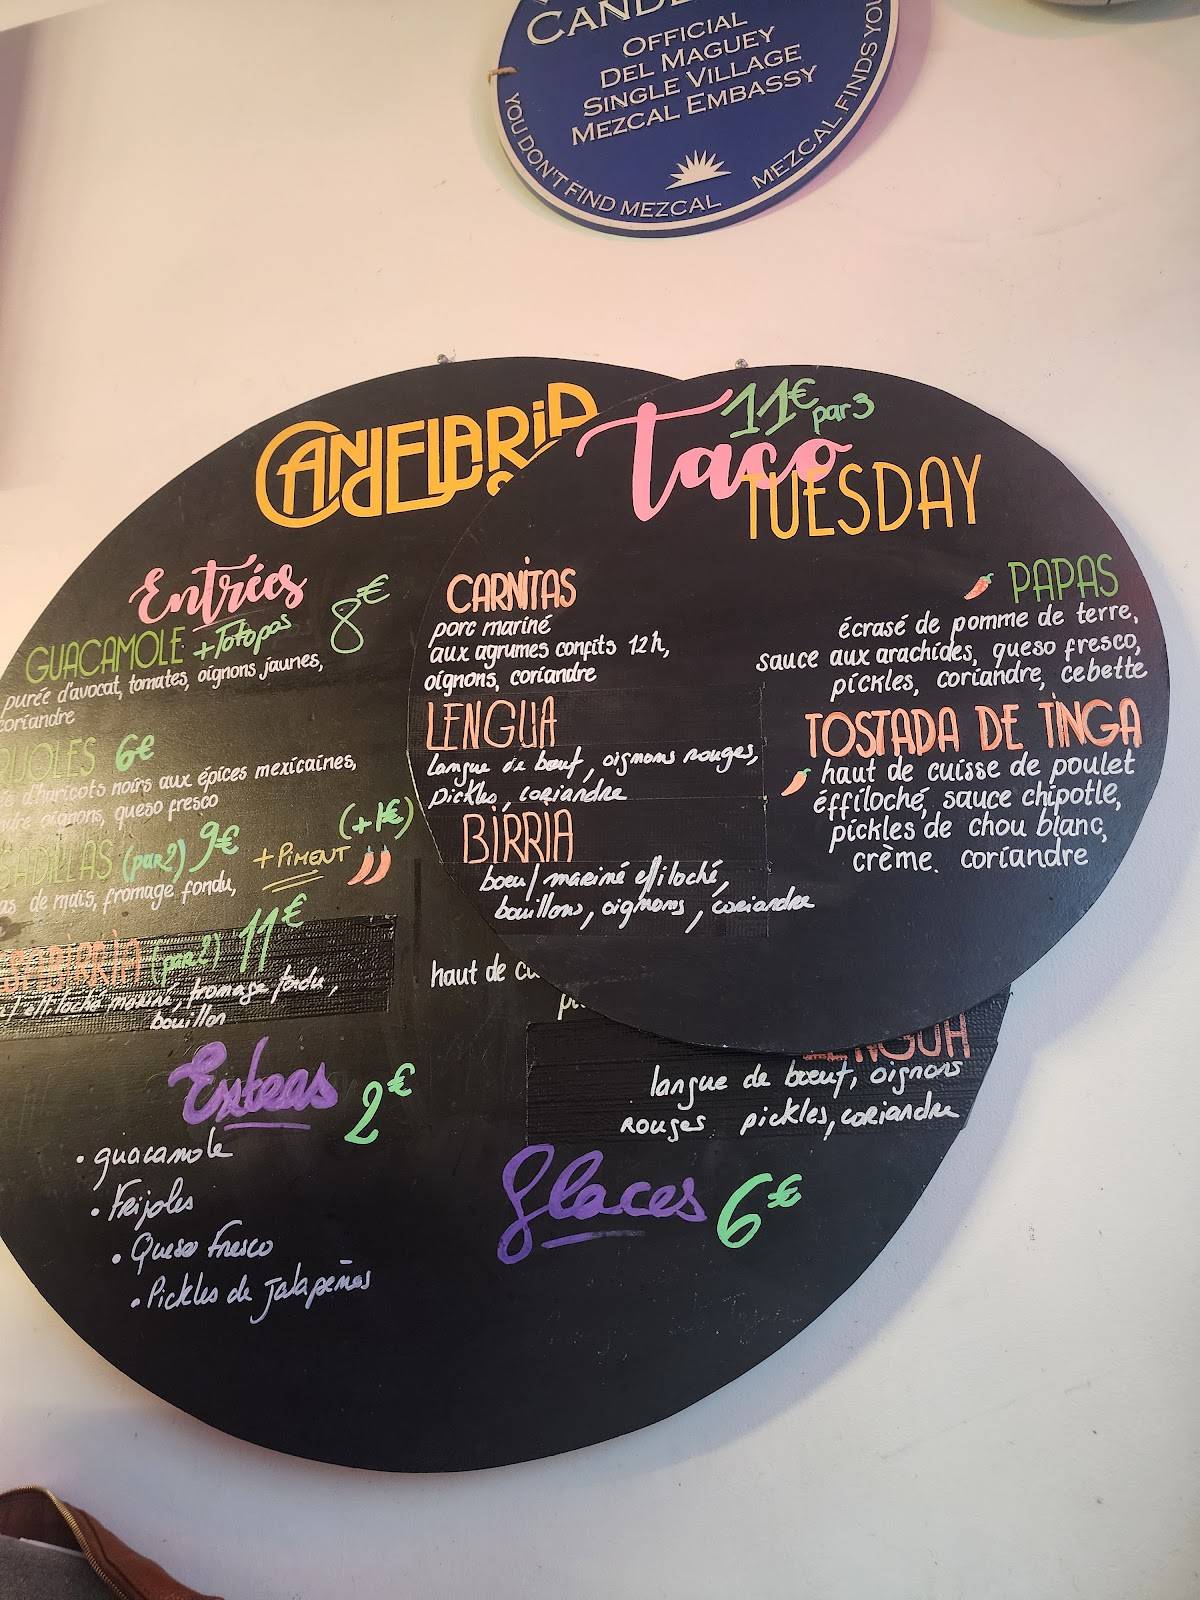 OFFICIAL
DEL MAGUEY
SINGLE VILLAGE
MEZCAL EMBASSY
YOU DON'T FIND MEZCAL
MEZCAL FINDS YOU
CANDELARIA
Entrées
GUACAMOLE + Totopos 8€
purée d'avocat, tomates, oignons jaunes,
coriandre
6€
d'haricots noirs aux épices mexicaines,
oignons, queso fresco
(par 2) 9€ + PIMENT (+1€)
de maïs, fromage fondu,
BIRRIA (par 2) 11€
effiloché mariné, fromage fondu,
bouillon
Extras 2€
• guacamole
• Frijoles
• Queso Fresco
• Pickles de Jalapeños
haut de
langue de bœuf, oignons
rouges pickles, coriandre
Glaces 6€
11€ par 3
Taco
TUESDAY
CARNITAS
porc mariné
aux agrumes confits 12h,
oignons, coriandre
LENGUA
langue de bœuf, oignons rouges,
pickles, coriandre
BIRRIA
bœuf mariné effiloché,
bouillons, oignons, coriandre
PAPAS
écrasé de pomme de terre,
sauce aux arachides, queso fresco,
pickles, coriandre, cebette
TOSTADA DE TINGA
haut de cuisse de poulet
éffiloché, sauce chipotle,
pickles de chou blanc,
crème. coriandre